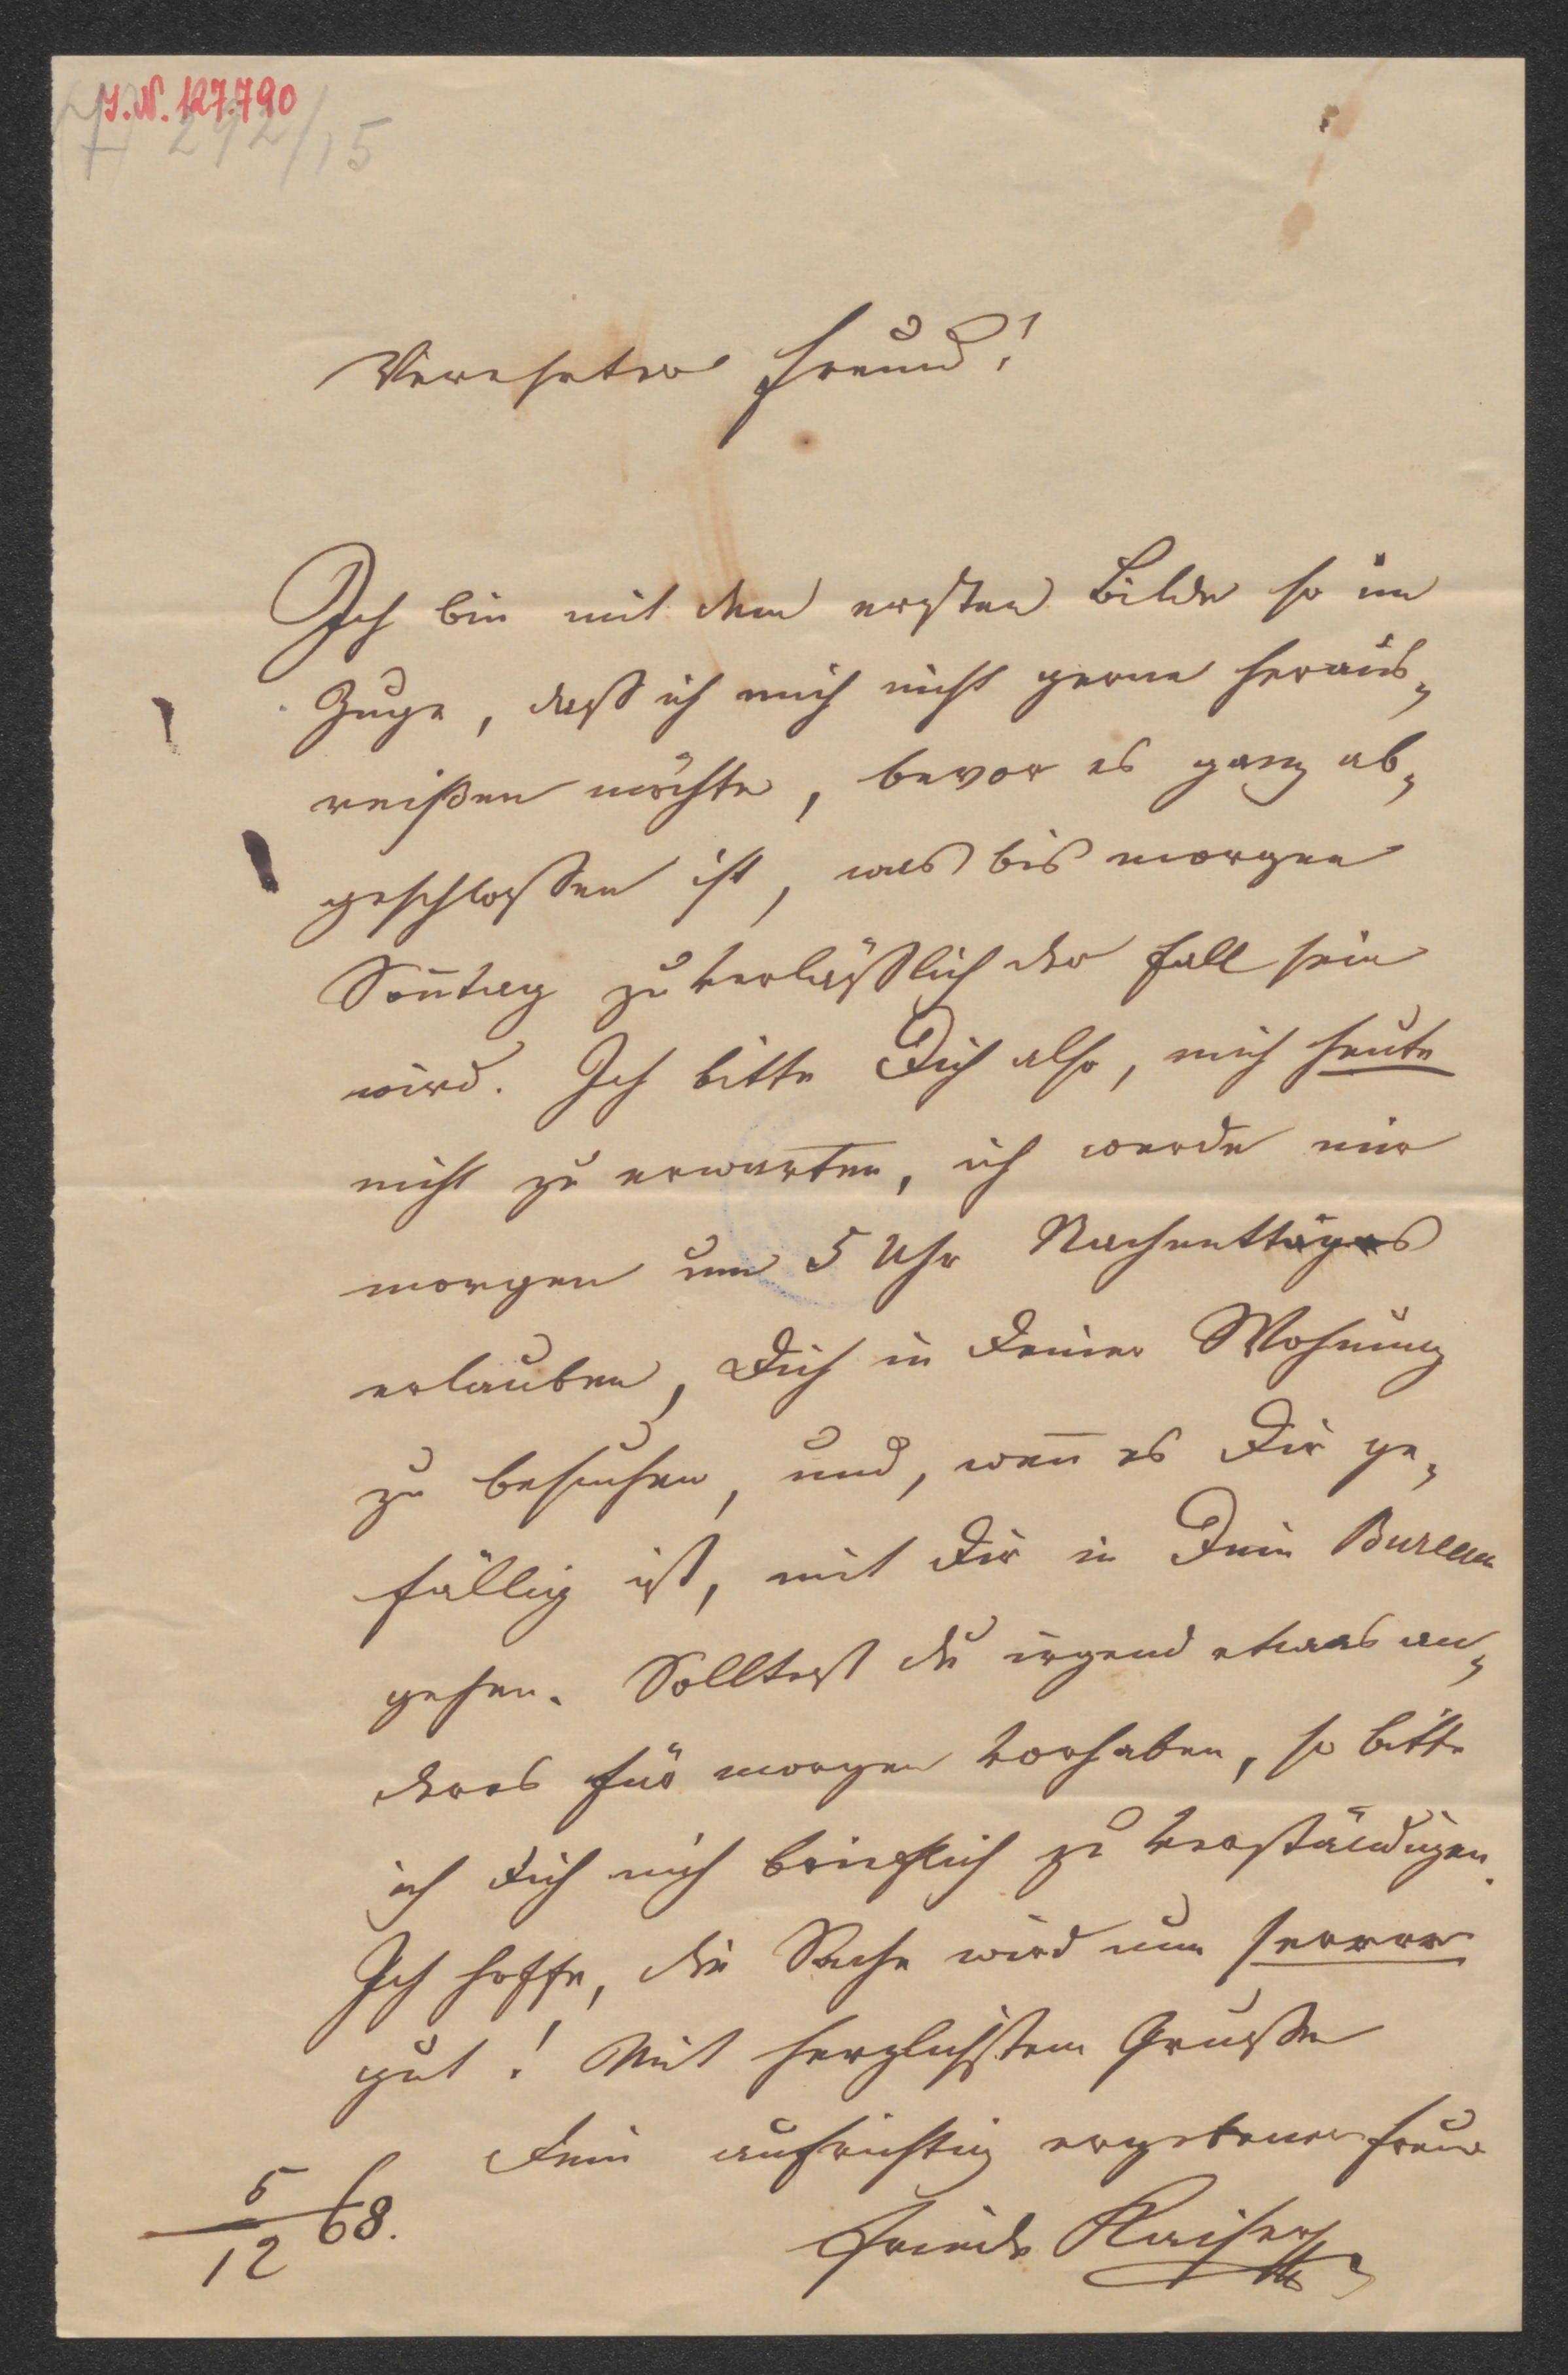 J.N. 127.790
292/15
Verehrter Freund!
Ich bin mit dem ersten Bilde so im
Zuge, daß ich mich nicht gerne heraus-
reißen möchte, bevor es ganz ab-
geschlossen ist, was bis morgen
Soñtag zuverläßlich der Fall sein
wird. Ich bitte Dich also, mich heute
nicht zu erwarten, ich werde mir
morgen um 5 Uhr Nachmittags
erlauben, Dich in Deiner Wohnung
zu besuchen, und, wen̄ es Dir ge-
fällig ist, mit Dir in Dein Bureau
gehen. Solltest du irgend etwas an-
deres für morgen vorhaben, so bitte
ich Dich mich brieflich zu verständigen.
Ich hoffe, die Sache wird nun
gut! Mit herzlichstem Gruße
Dein aufrichtig ergebener Freund
5/12 68.
Friedr Kaiser